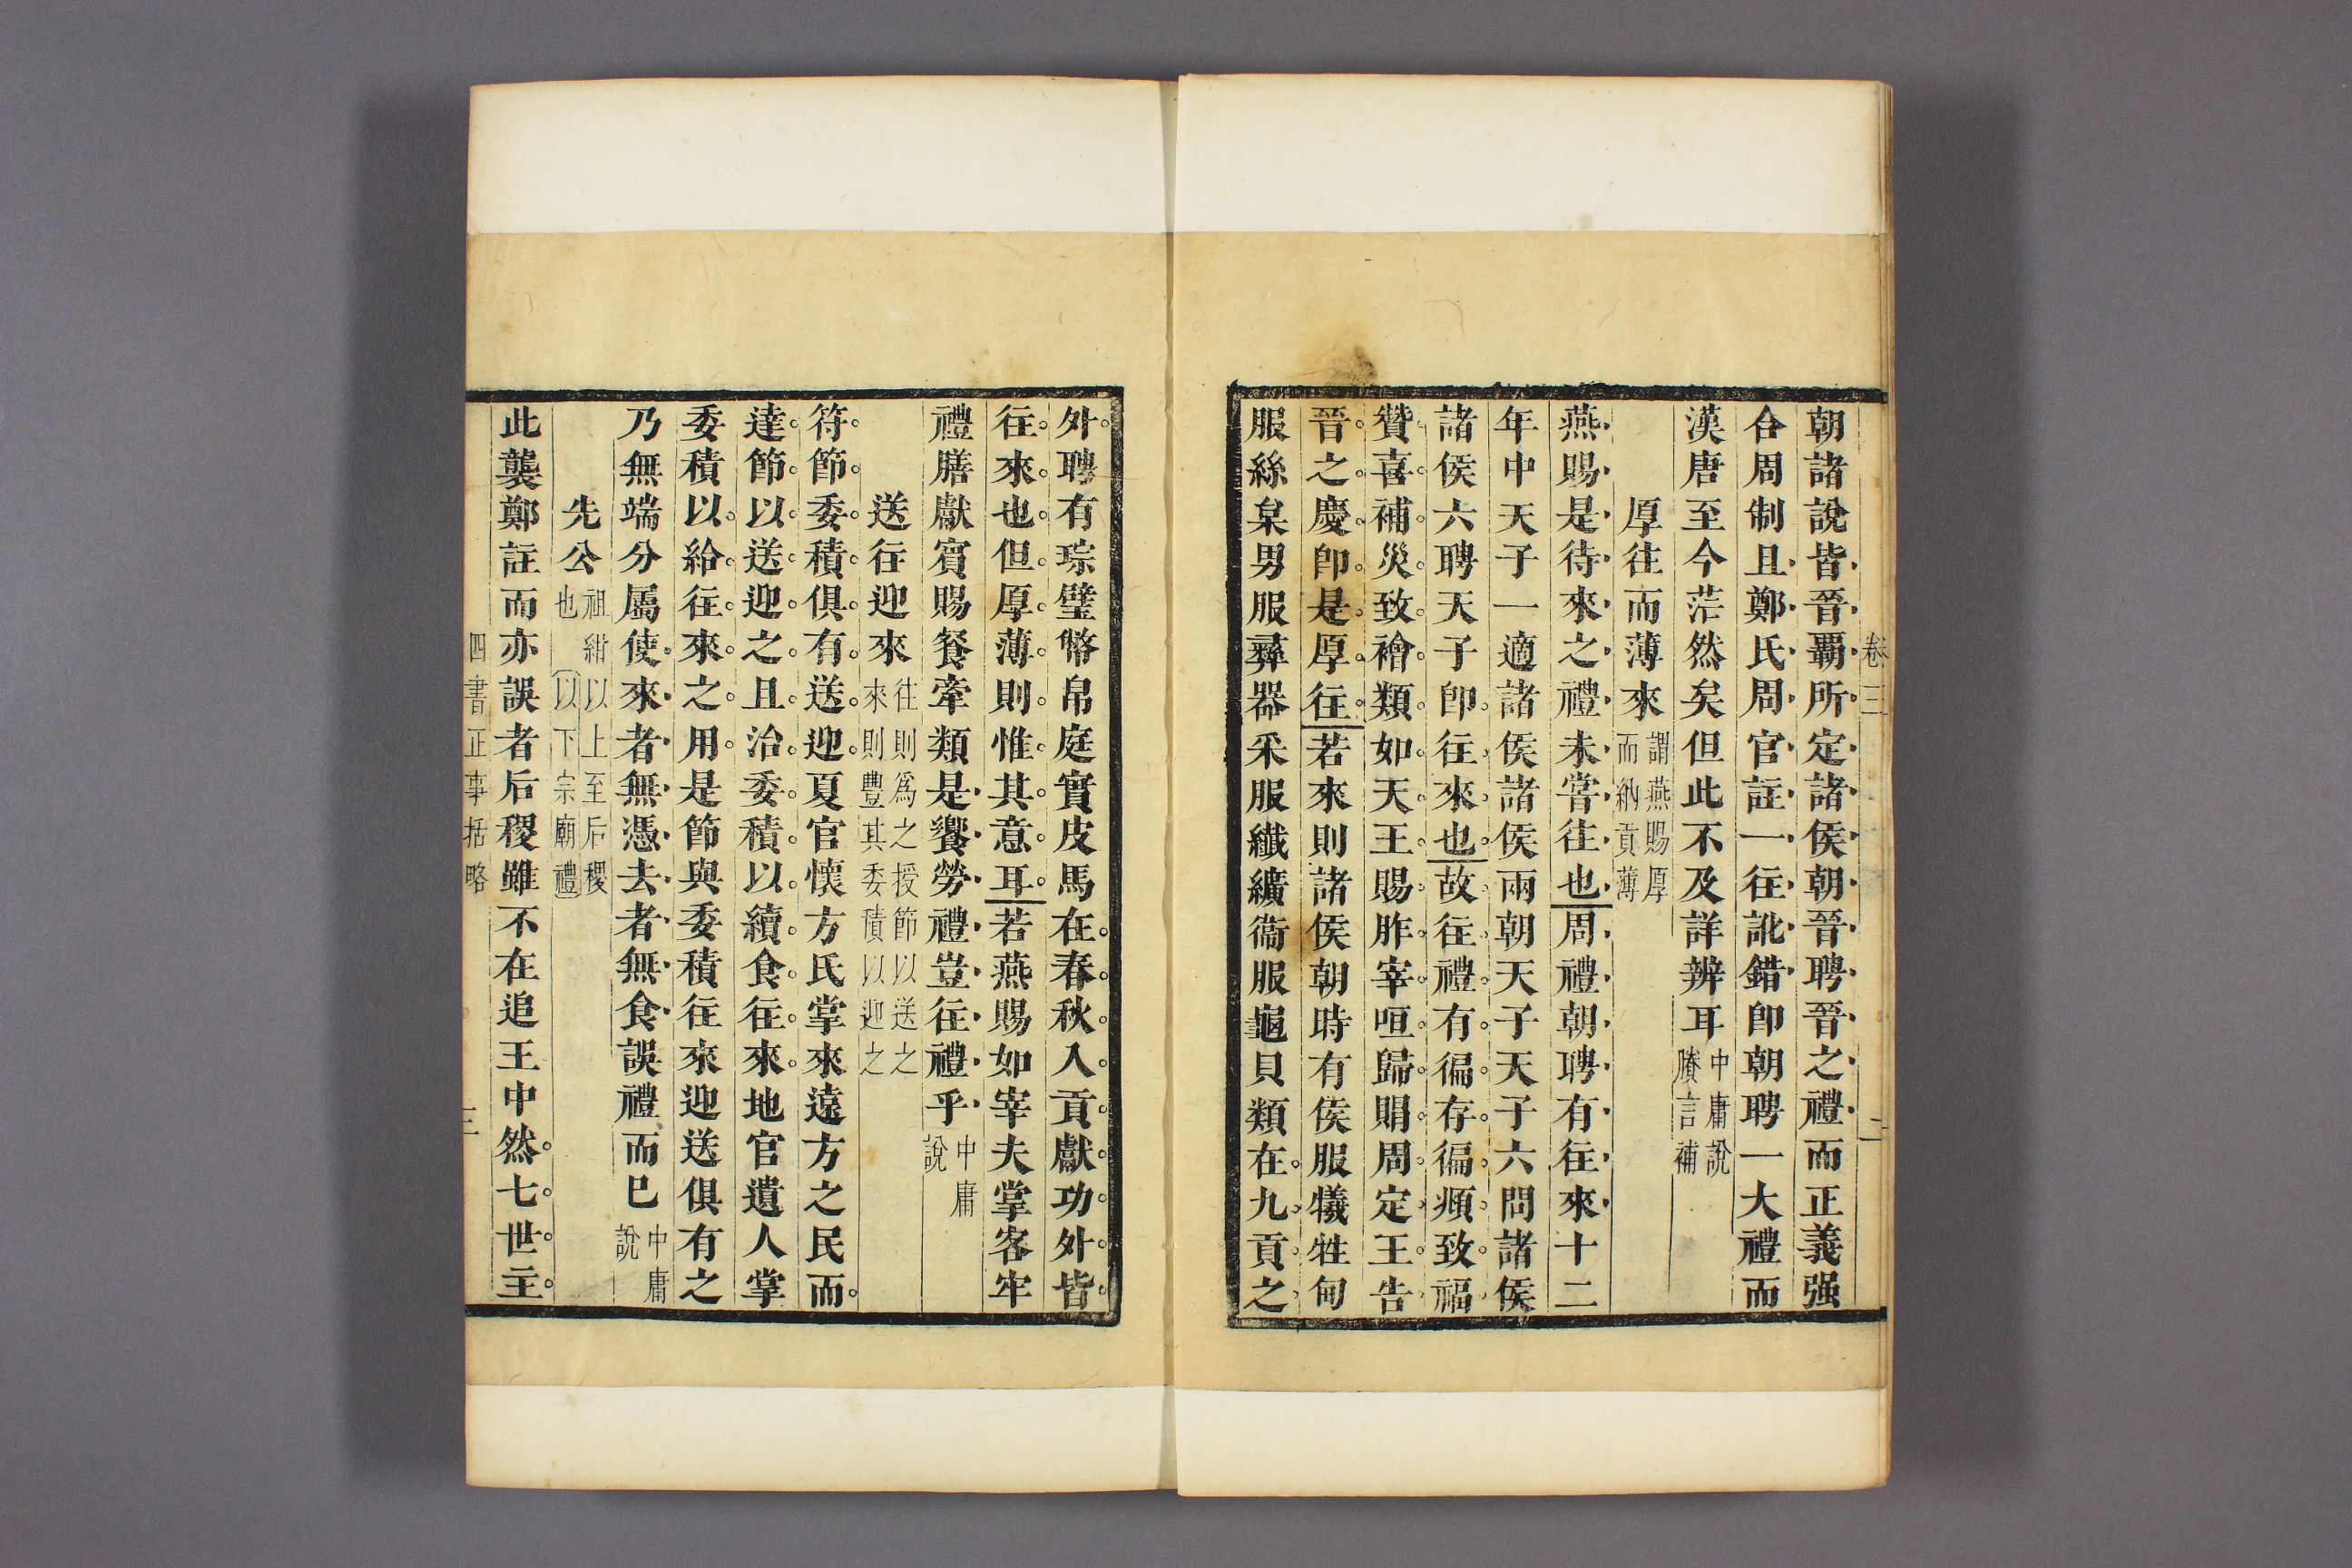 卷三 二
朝諸說皆晉覇所定諸侯朝晉聘晉之禮而正義强
合周制且鄭氏周官註一往訛錯卽朝聘一大禮而
漢唐至今茫然矣但此不及詳辨耳中庸說賸言補
厚往而薄來謂燕賜厚而納貢薄
燕賜是待來之禮未嘗往也周禮朝聘有往來十二
年中天子一適諸侯諸侯兩朝天子天子六問諸侯
諸侯六聘天子卽往來也故往禮有徧存徧頫致福
贊喜補災致禬類如天王賜胙宰咺歸賵周定王告
晉之慶卽是厚往若來則諸侯朝時有侯服犧牲甸
服絲枲男服彞器采服纖纊衞服龜貝類在九貢之
外聘有琮璧幣帛庭實皮馬在春秋入貢獻功外皆
往來也但厚薄則惟其意耳若燕賜如宰夫掌客牢
禮膳獻賓賜餐牽類是饗勞禮豈往禮乎中庸說
送往迎來往則爲之授節以送之來則豐其委積以迎之
符節委積俱有送迎夏官懷方氏掌來遠方之民而
達節以送迎之且治委積以續食往來地官遺人掌
委積以給往來之用是節與委積往來迎送俱有之
乃無端分屬使來者無憑去者無食誤禮而已中庸說
先公祖紺以上至后稷也以下宗廟禮
此襲鄭註而亦誤者后稷雖不在追王中然七世主
四書正事括略 三